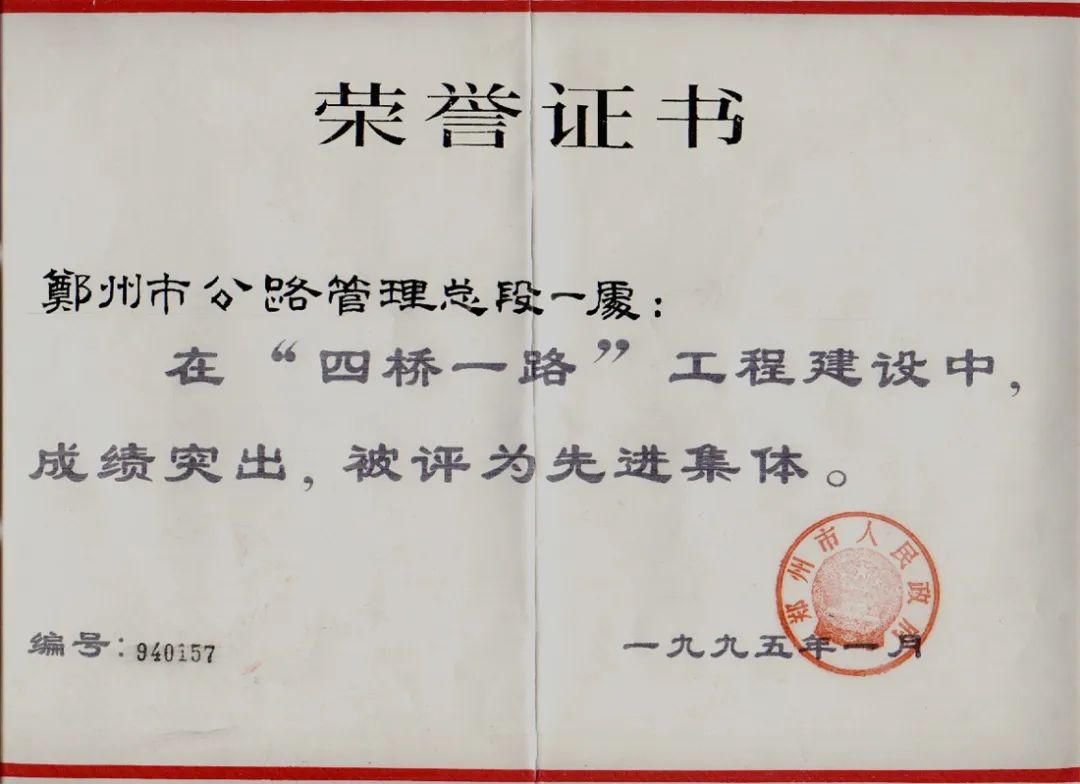 荣誉证书
鄭州市公路管理总段一處：
在“四桥一路”工程建设中，
成绩突出，被评为先进集体。
郑州市人民政府
编号：940157
一九九五年一月